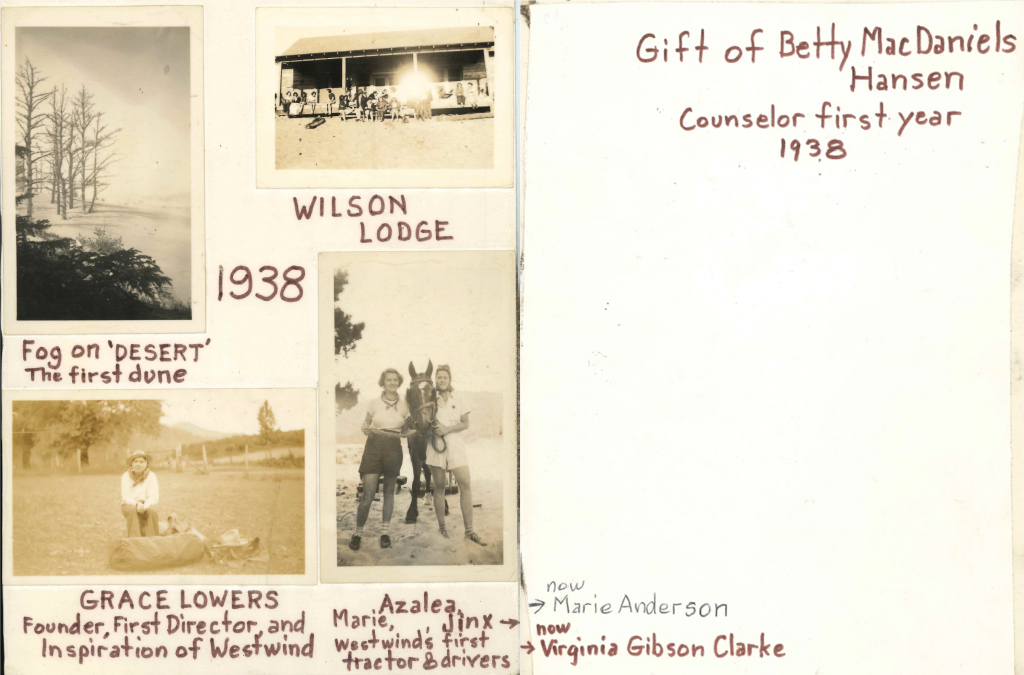 WILSON
LODGE
1938
Fog on 'DESERT'
The first dune
GRACE LOWERS
Founder, First Director, and
Inspiration of Westwind
Azalea,
Marie, , Jinx →
Westwind's first
tractor & drivers
Gift of Betty MacDaniels
Hansen
Counselor first year
1938
now
→ Marie Anderson
now
→ Virginia Gibson Clarke